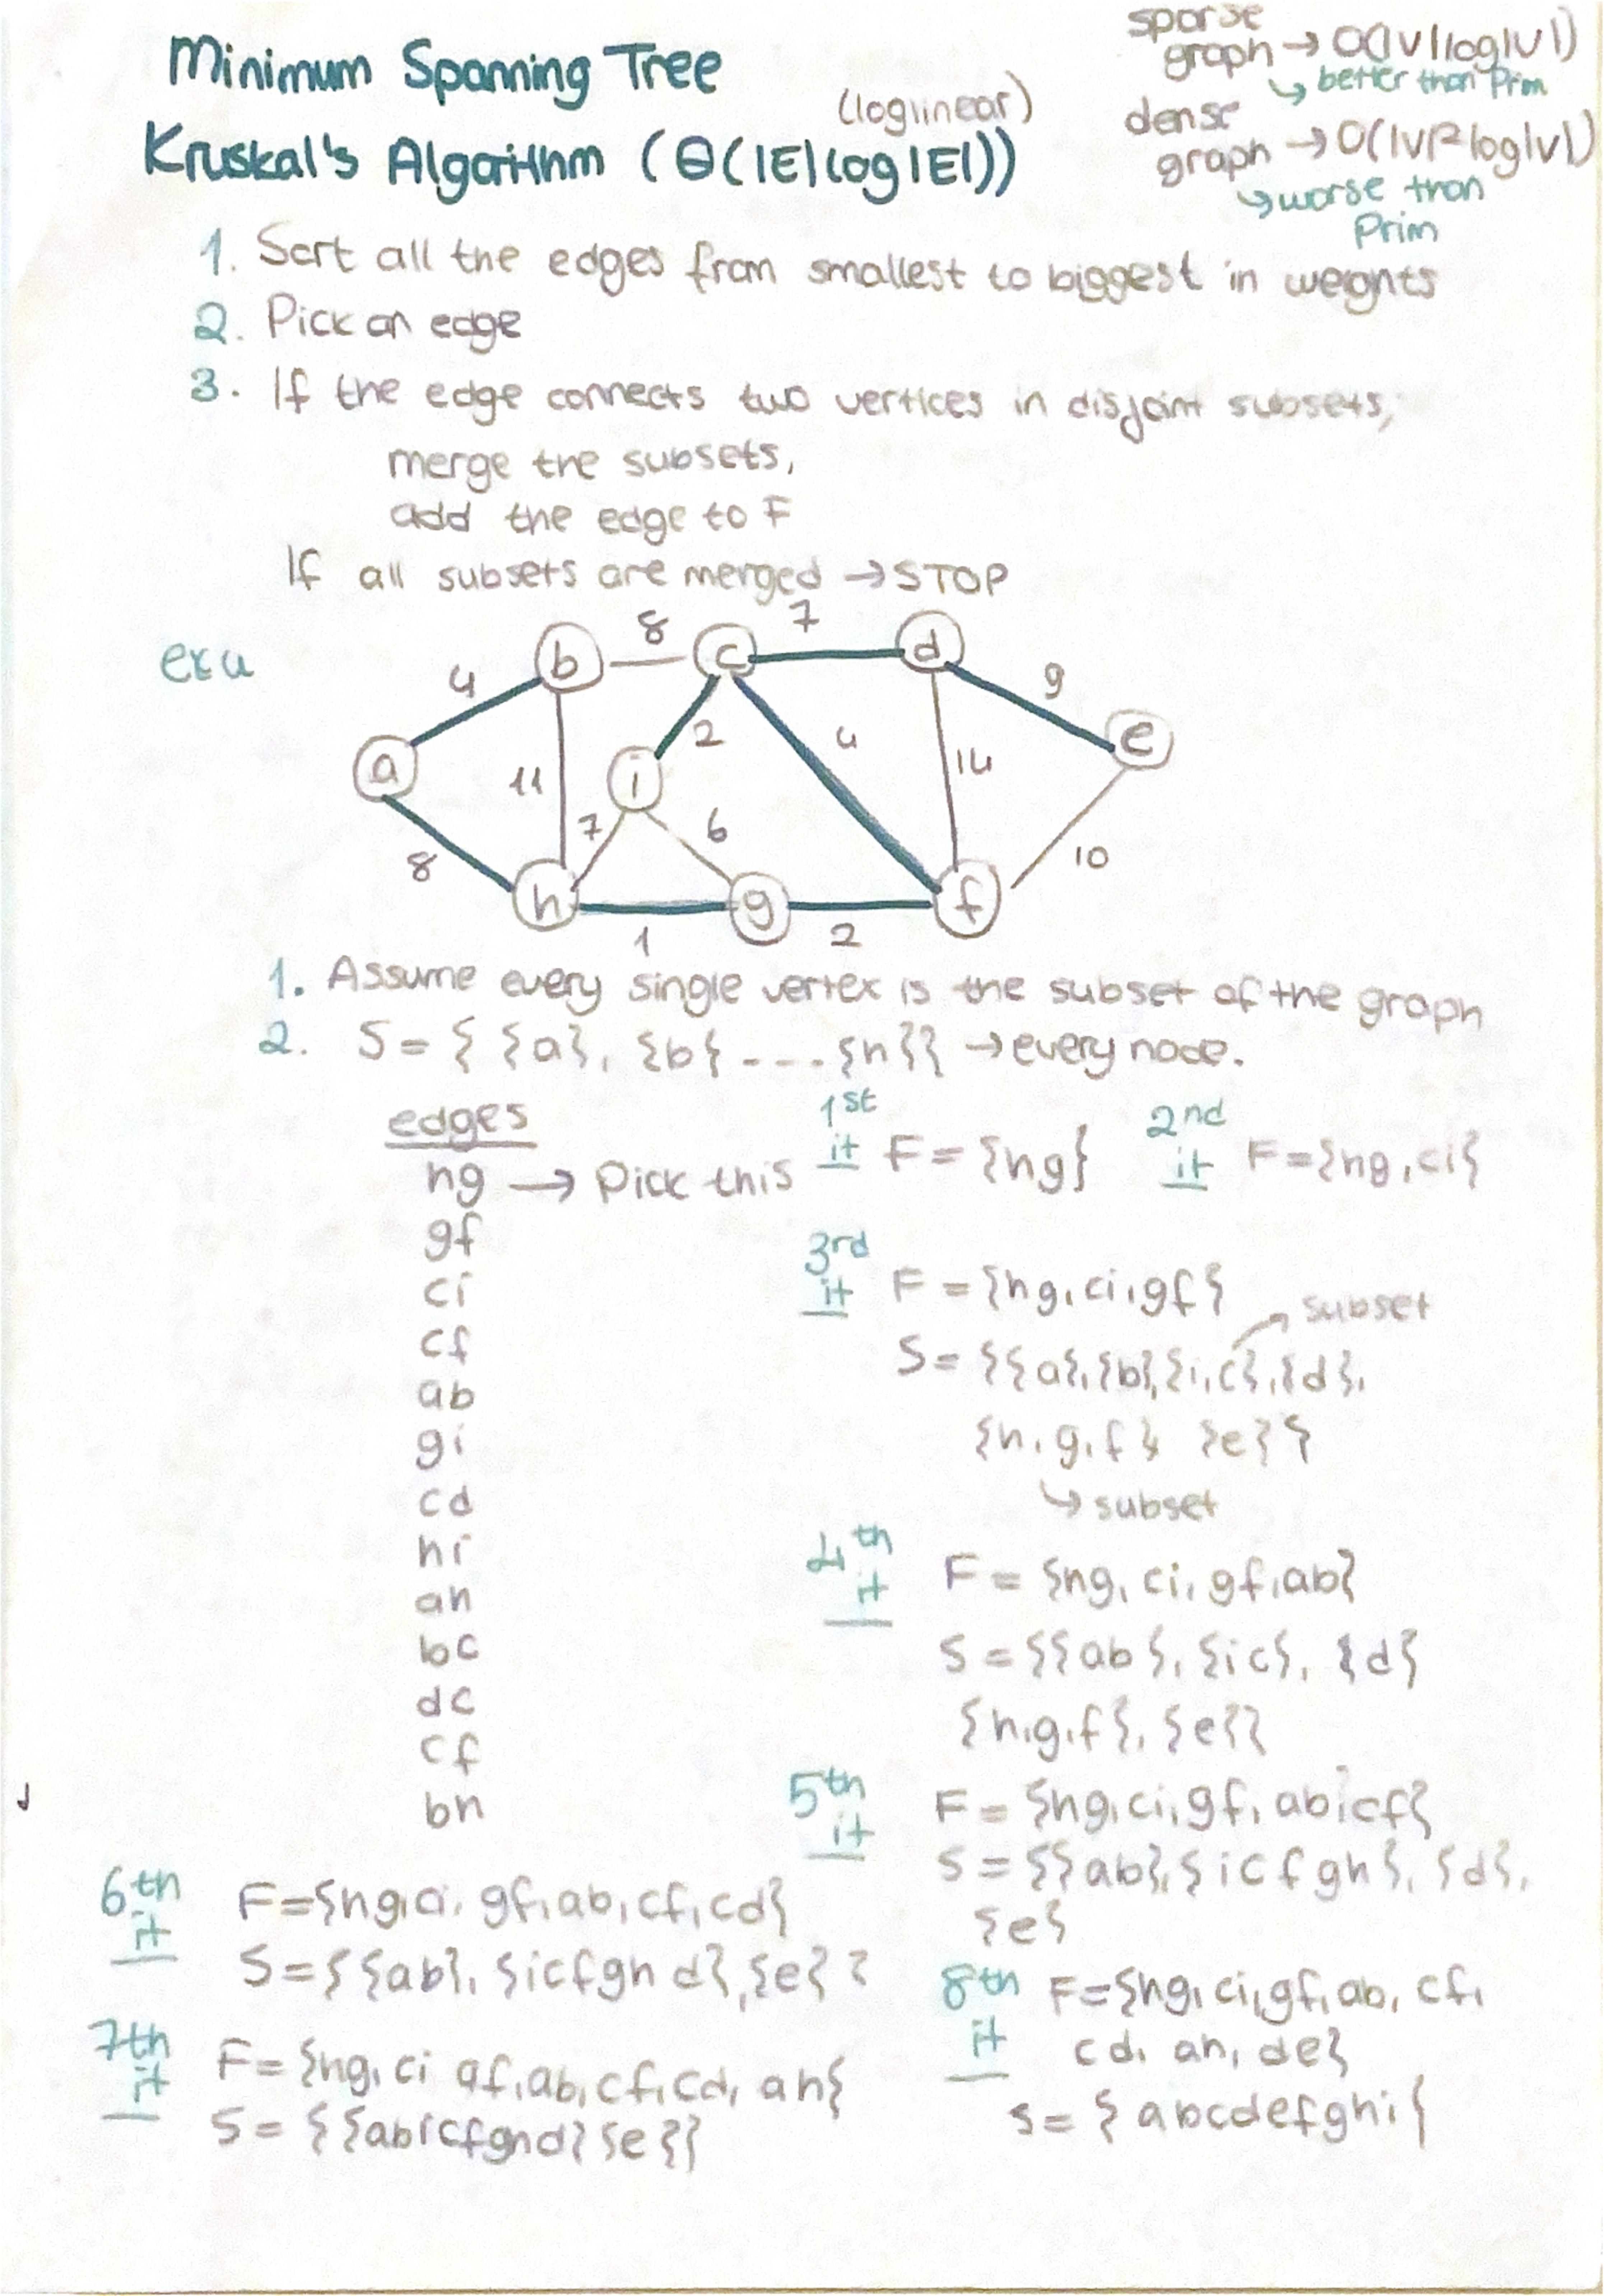 Minimum Spanning Tree
(loglinear)
Kruskal's Algorithm (Θ(|E|log|E|))
sparse
graph → O(|V|log|V|)
↳ better than Prim
dense
graph → O(|V|²log|V|)
↳ worse than
Prim
1. Sort all the edges from smallest to biggest in weights
2. Pick an edge
3. If the edge connects two vertices in disjoint subsets,
merge the subsets,
add the edge to F
If all subsets are merged → STOP
ex4
b 8 c 7 d
4 9
a 11 i 2 4 14 e
8 7 6 10
h 1 g 2 f
1. Assume every single vertex is the subset of the graph
2. S = { {a}, {b} ---- {h}} → every node.
edges
hg → Pick this
gf
ci
cf
ab
gi
cd
hi
ah
bc
dc
cf
bh
1st it F = {hg}
2nd it F = {hg, ci}
3rd it F = {hg, ci, gf}
S = {{a}, {b}, {i, c}, {d}, → subset
{h, g, f} {e}}
↳ subset
4th it F = {hg, ci, gf, ab}
S = {{ab}, {ic}, {d}
{h,g,f}, {e}}
5th it F = {hg, ci, gf, ab, cf}
S = {{ab}, {icfgh}, {d},
{e}
6th it F = {hg, ci, gf, ab, cf, cd}
S = {{ab}, {icfgh d}, {e}}
7th it F = {hg, ci gf, ab, cf, cd, ah}
S = {{abicfghd} {e}}
8th it F = {hg, ci, gf, ab, cf,
cd, ah, de}
S = {abcdefghi}